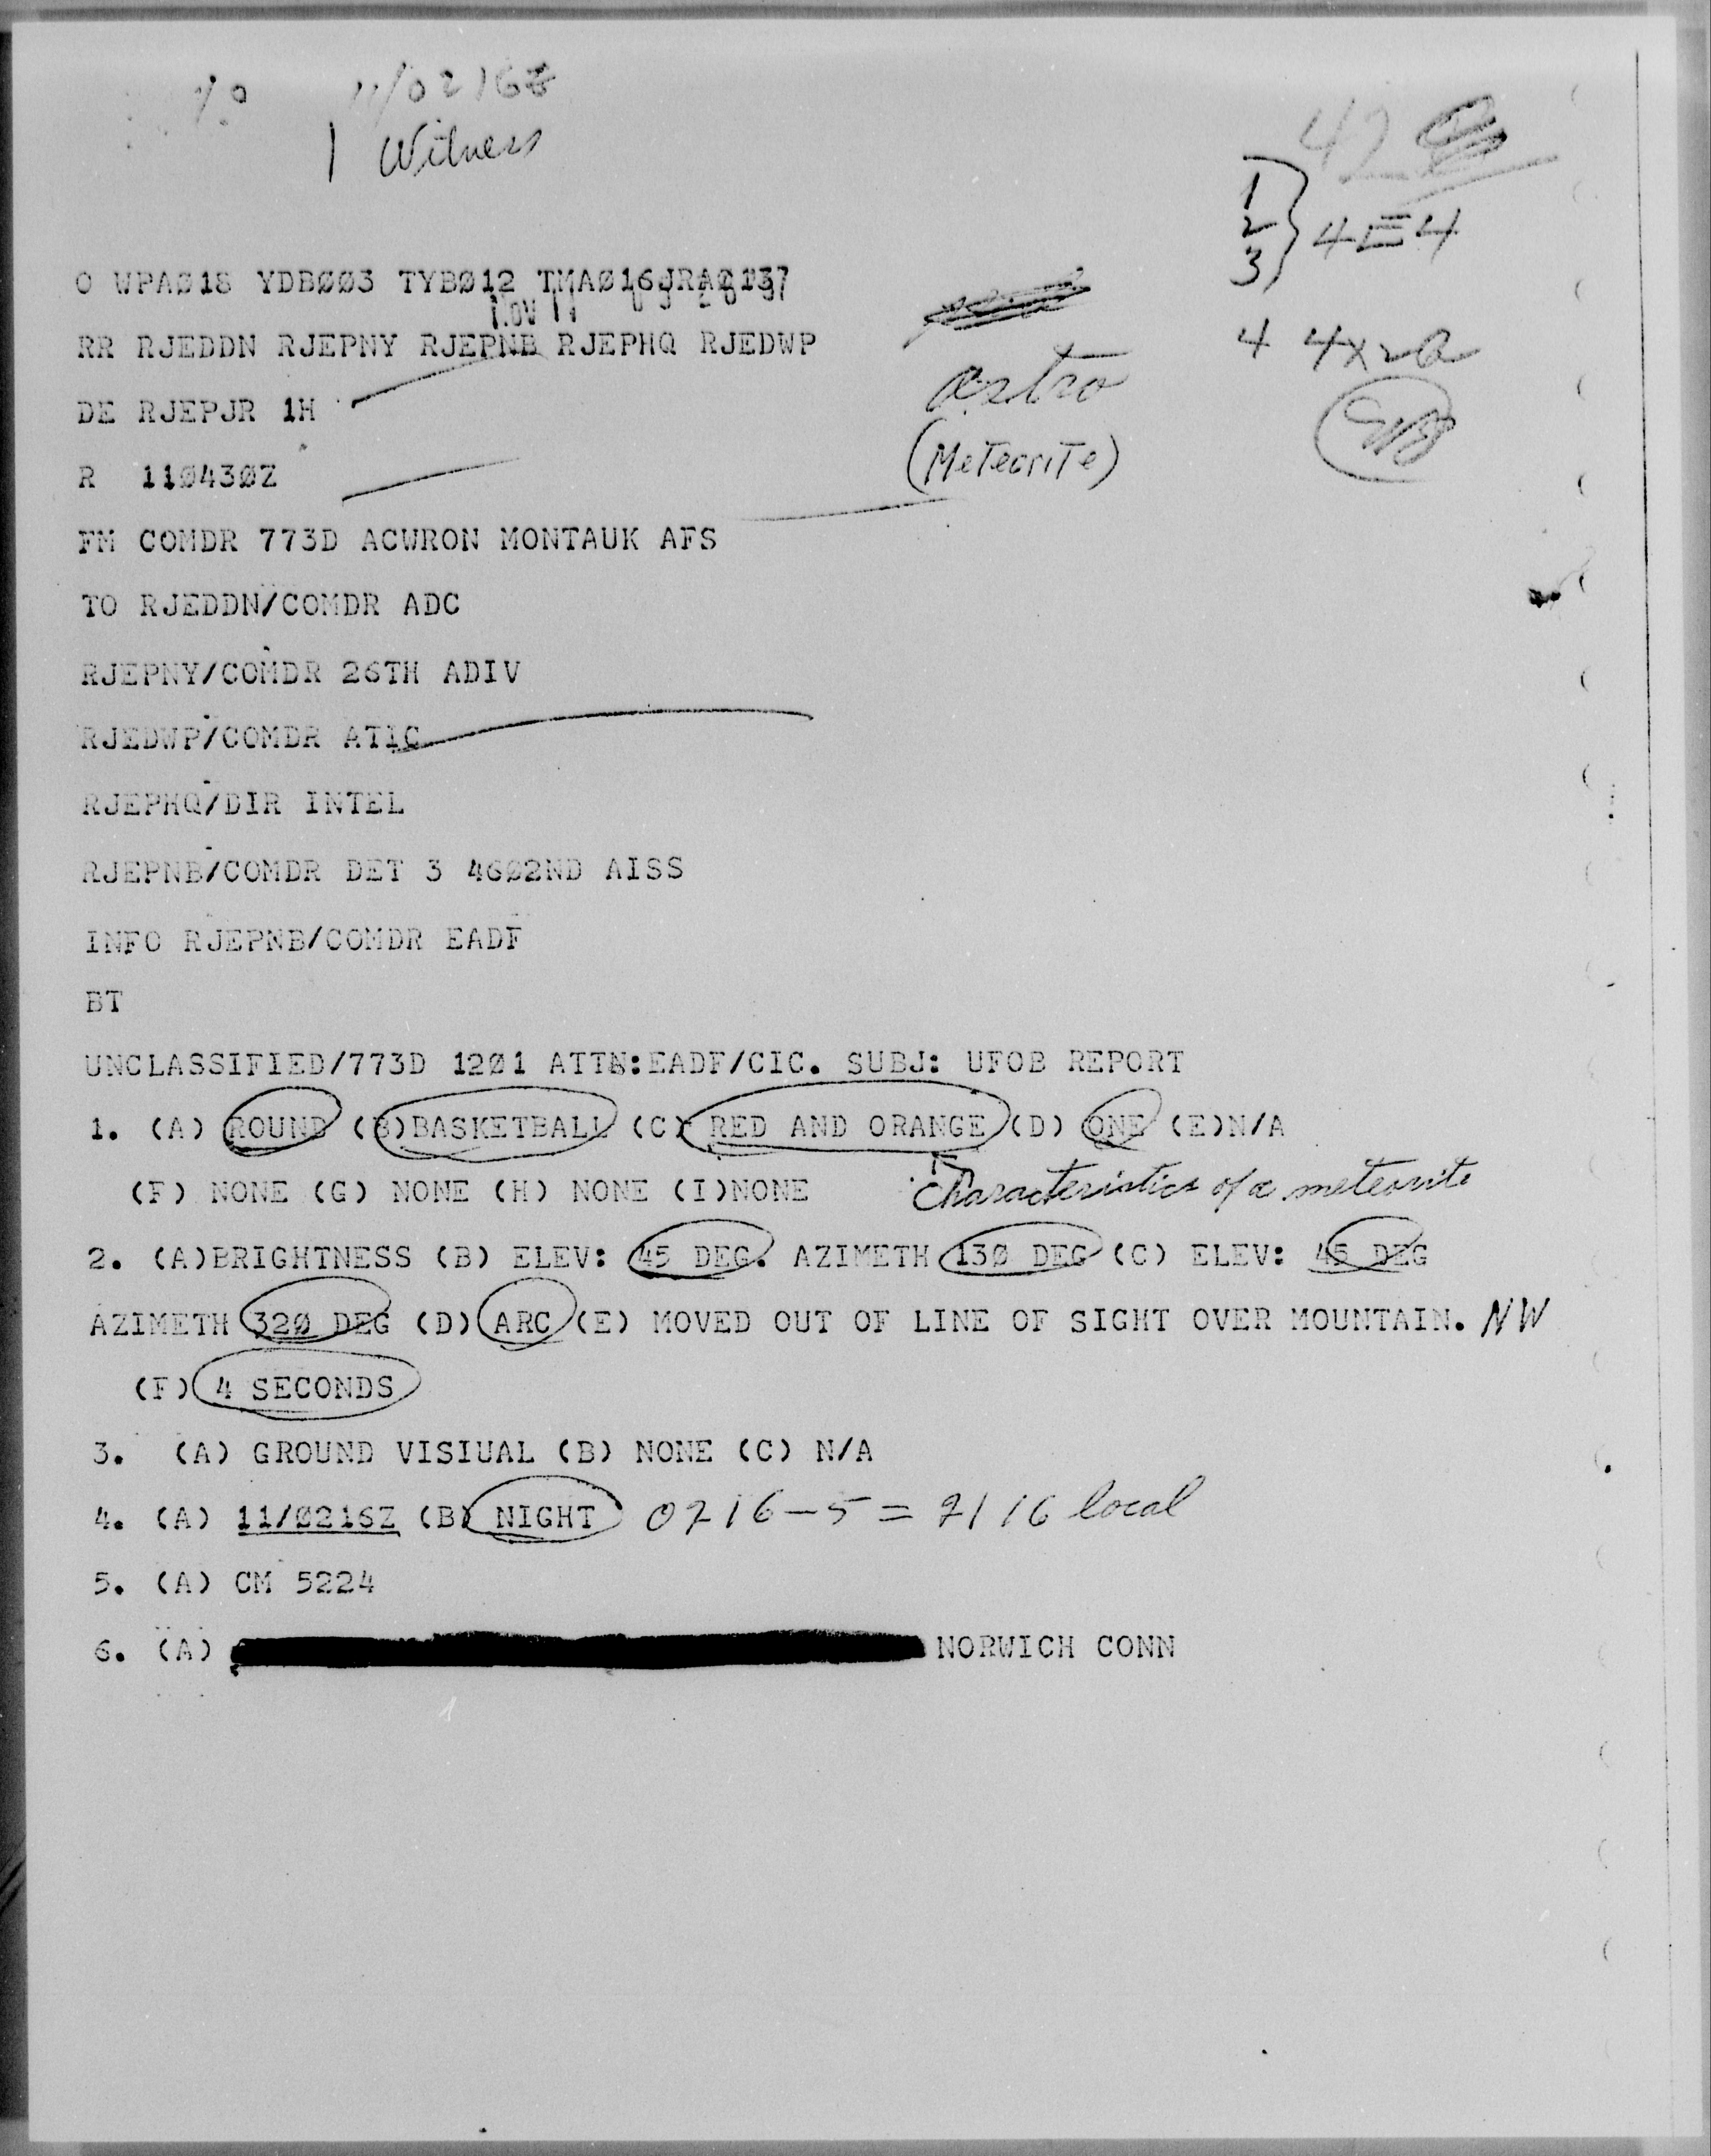 11/0216Z
1 Witness
42
1
2
3
} 4E4
O WPAØ18 YDBØØ3 TYBØ12 TMAØ16JRAØ137
NOV 11
RR RJEDDN RJEPNY RJEPNB RJEPHQ RJEDWP
4 4x2a
astro
DE RJEPJR 1H
(Meteorite)
R 11Ø43ØZ
FM COMDR 773D ACWRON MONTAUK AFS
TO RJEDDN/COMDR ADC
RJEPNY/COMDR 26TH ADIV
RJEDWP/COMDR ATIC
RJEPHQ/DIR INTEL
RJEPNB/COMDR DET 3 46Ø2ND AISS
INFO RJEPNB/COMDR EADF
BT
UNCLASSIFIED/773D 12Ø1 ATTN:EADF/CIC. SUBJ: UFOB REPORT
1. (A) ROUND (B)BASKETBALL (C) RED AND ORANGE (D) ONE (E)N/A
(F) NONE (G) NONE (H) NONE (I)NONE Characteristics of a meteorite
2. (A)BRIGHTNESS (B) ELEV: 45 DEG. AZIMETH 13Ø DEG (C) ELEV: 45 DEG
AZIMETH 32Ø DEG (D) ARC (E) MOVED OUT OF LINE OF SIGHT OVER MOUNTAIN. NW
(F) 4 SECONDS
3. (A) GROUND VISIUAL (B) NONE (C) N/A
4. (A) 11/Ø216Z (B) NIGHT 0216-5 = 2116 local
5. (A) CM 5224
6. (A) NORWICH CONN